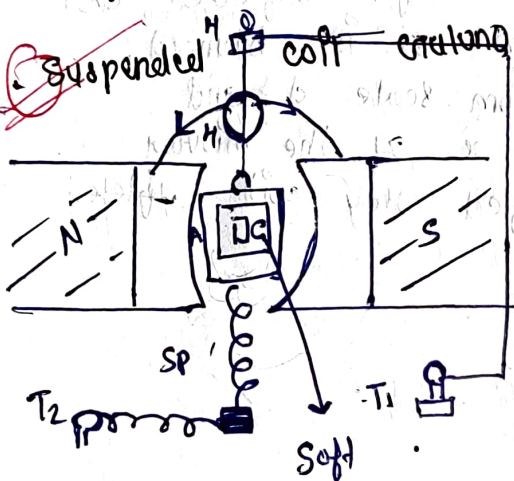 H
Suspended coil
M
N
A
C
S
SP
T2
T1
Soft